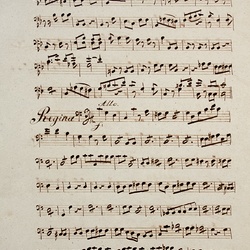 Allo.
Regina